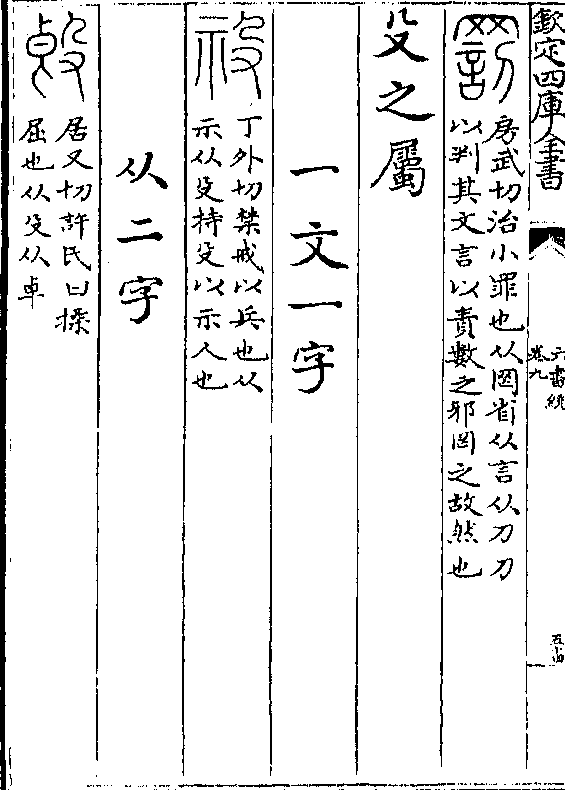 欽定四庫全書
六書統
卷九
罰
房武切治小罪也从网省从言从刀刀
以判其文言以責數之邪网之故然也
殳之屬
一文一字
祋
丁外切禁戒以兵也从
示从殳持殳以示人也
从二字
居又切許氏曰揉
屈也从殳从卓